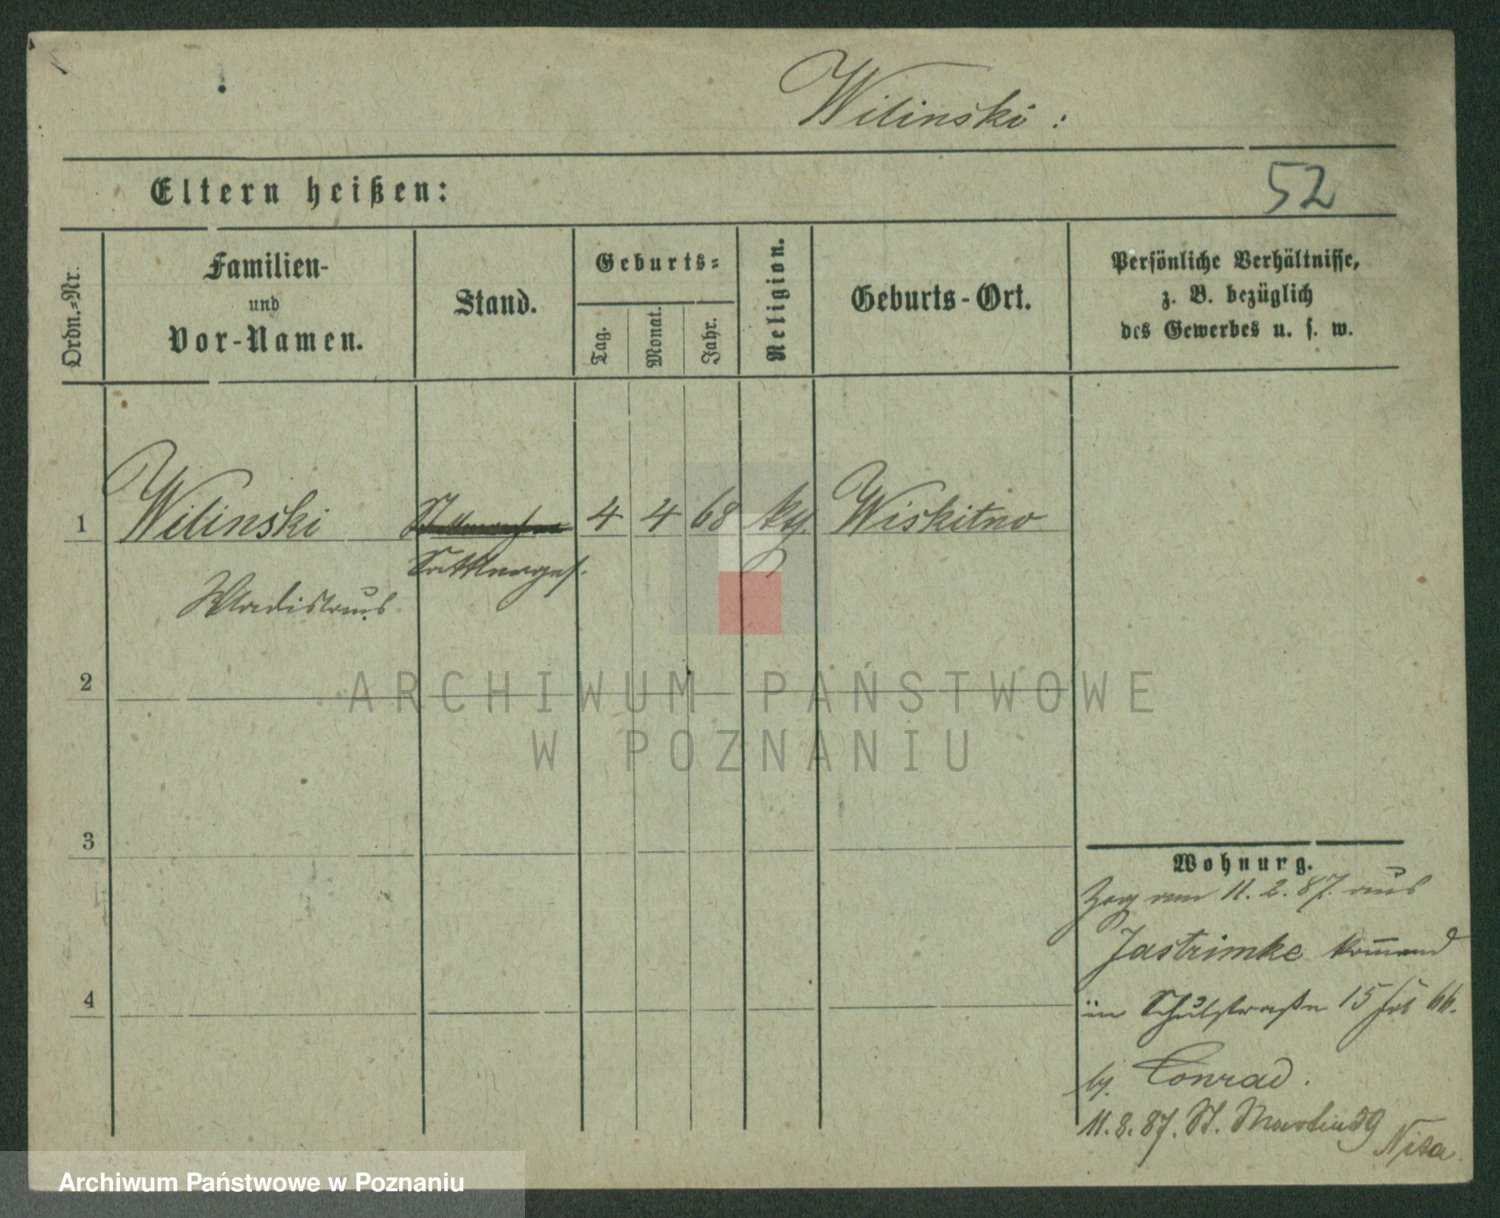 Wilinski:
Eltern heißen:
52
Ordn.-Nr.
Familien-
und
Vor-Namen.
Stand.
Geburts-
Tag.
Monat.
Jahr.
Religion.
Geburts-Ort.
Persönliche Verhältnisse,
z. B. bezüglich
des Gewerbes u. s. w.
1 Wilinski 4 4 68 Wiskitno
Sattlerges.
Wladislaus
2
3
4
Wohnung.
11. 2. 87. aus
Jastrimke
in Schulstraße 15
bj. Conrad.
11. 8. 87. St. Martin 59
ARCHIWUM PAŃSTWOWE
W POZNANIU
Archiwum Państwowe w Poznaniu